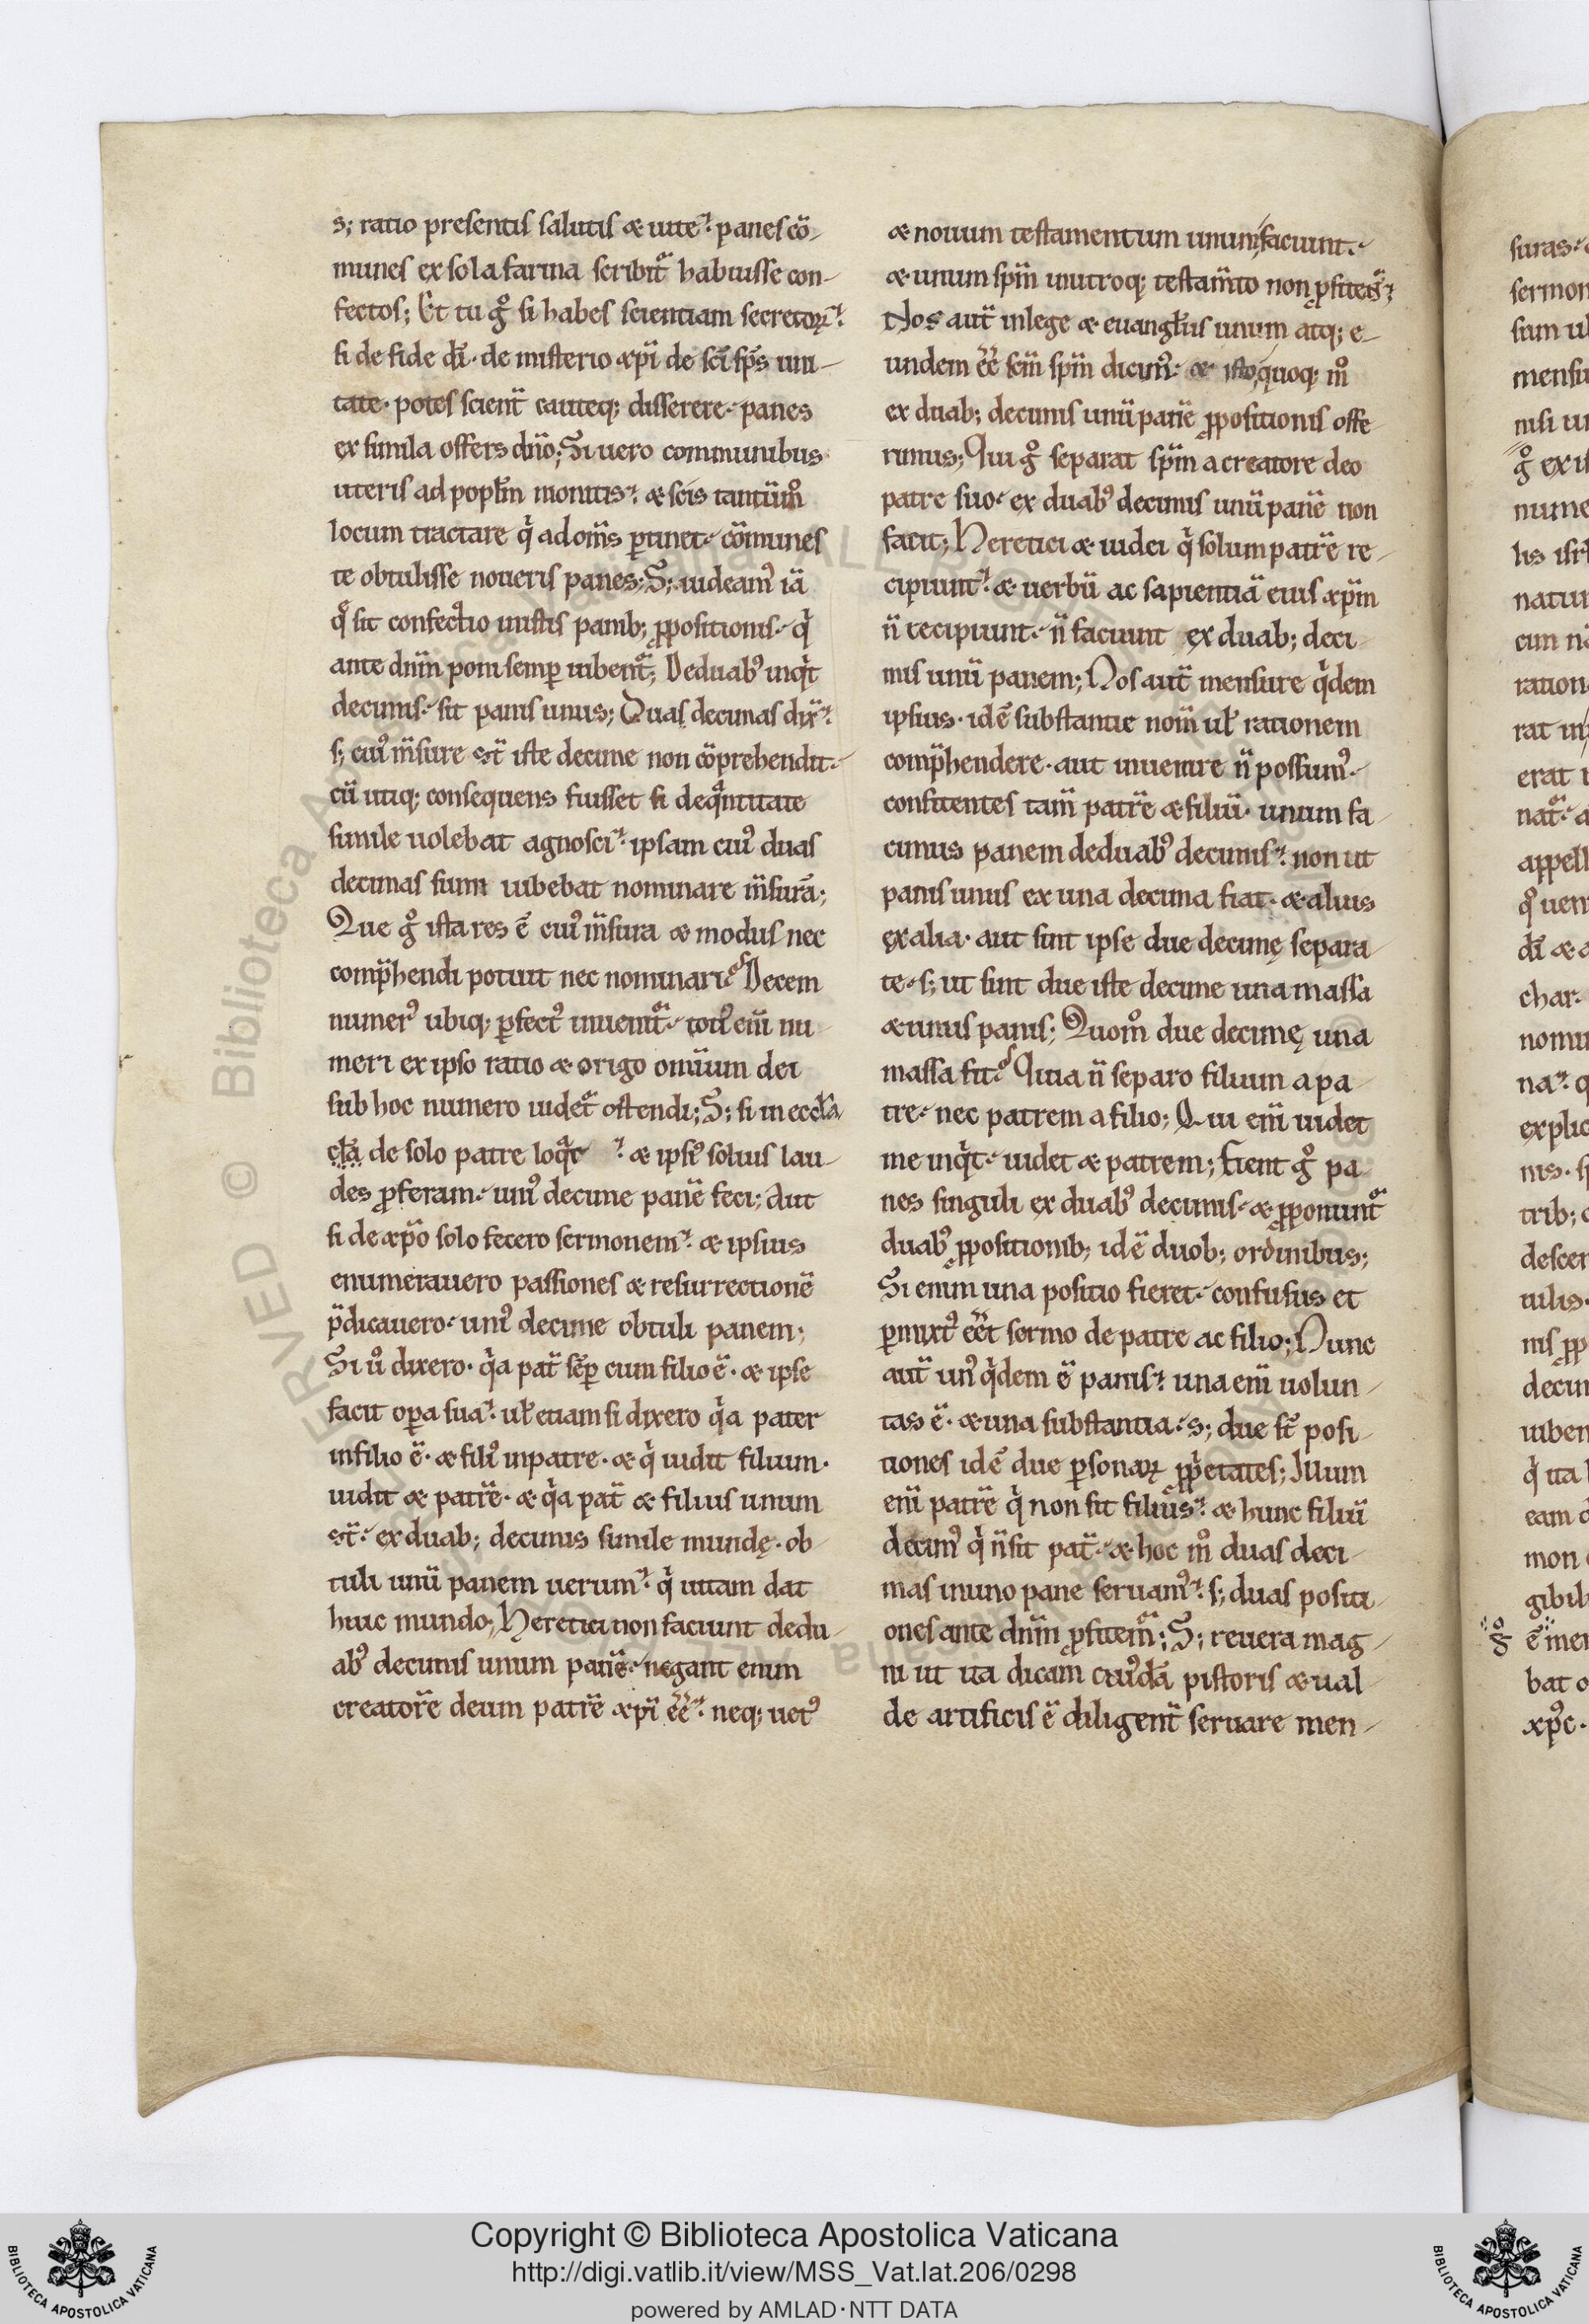 s; ratio presentis salutis æ uite. panes cō-
munes ex sola farina scribit̄ habuisse con-
fectos; Et tu g̊ si habes scientiam secretoꝝ.
si de fide dī. de misterio xp̄i de sc̄i sp̄s uni-
tate. potes scient̄ cauteq; disserere. panes
ex simila offers dn̄o; Si uero communibus
uteris ad popl̄m monitis. æ scis tantūm̊
locum tractare q̇ ad om̄s ꝑtinet. cōmunes
te obtulisse noueris panes; S; uideam᾿ iā
q̊ sit confectio inistis panib; ꝓpositionis. q̇
ante dn̄m poni semꝑ iubent̄; Deduab᾿ inq̇t
decimis. sit panis unus; Quas decimas dix̄.
s; cui᾿ m̄sure st̄ iste decime non cōprehendit.
cū utiq; consequens fuisset si deqͣntitate
simile uolebat agnosci. ipsam cui᾿ duas
decimas sum iubebat nominare m̄surā;
Que g̊ ista res ē cui᾿ m̄sura æ modus nec
comp̄hendi potuit nec nominari. Decem
numer᾿ ubiq; ꝑfect᾿ inuenit̄. toti᾿ eni᷒ nu
meri ex ipso ratio æ origo omīum dei
sub hoc numero uidet̄ ostendi; S; si in eccl̄a
cl̄a de solo patre loqͣr . æ ipsi᾿ solius lau-
des ꝓferam. uni᾿ decime panē feci; Aut
si de xp̄o solo fecero sermonem. æ ipsius
enumerauero passiones æ resurrectionē
p̄dicauero. uni᾿ decime obtuli panem;
Si ů dixero. q̇a pat̄ sēꝑ cum filio ē. æ ipse
facit oꝑa sua. ul̄ etiam si dixero q̇a pater
in filio ē. æ fili᾿ inpatre. æ q̇ uidit filium.
uidit æ patrē. æ q̇a pat̄ æ filius unum
st̄. ex duab; decimis simile mundę. ob
tuli unū panem uerum. q̇ uitam dat
huic mundo; Heretici non faciunt dedu
ab᾿ decimis unum panē. negant enim
creatorē deum patrē xp̄i ēē. neq; uet᾿
æ nouum testamentum unum faciunt.
æ unum sp̄m inutroq; testam̄to non ꝓfitet̄;
Nos aut̄ inlege æ euangl̄iis unum atq; e-
undem ēē sc̄m sp̄m dicim᾿. æ isto quoq; m̊
ex duab; decimis unū panē ꝓpositionis offe
rimus; Qui g̊ separat sp̄m a creatore deo
patre suo. ex duab᾿ decimis unū panē non
facit; Heretici æ iudei q̇ solum patrē re-
cipiunt. æ uerbū ac sapientiā eius xp̄m
n̄ recipiunt. n̄ faciunt ex duab; deci-
mis unū panem; Nos aut̄ mensure q̇dem
ipsius. idē substantie nom̄ ul̄ rationem
comp̄hendere. aut inuenire n̄ possum᾿.
confitentes tam̄ patrē æ filiū. unum fa-
cimus panem deduab᾿ decimis. non ut
panis unus ex una decima fiat. æ alius
ex alia. aut sint ipse due decimę separa-
te. s; ut sint due iste decime una massa
æ unus panis; Quom̊ due decimę una
massa fit. Quia n̄ separo filium a pa-
tre. nec patrem a filio; Qui eni᷒ uidet
me inq̇t. uidet æ patrem; Fient g̊ pa-
nes singuli ex duab᾿ decimis. æ ꝓponunt̄
duab᾿ ꝓpositionib; idē duob; ordinibus;
Si enim una positio fieret. confusus et
ꝑmixt᾿ eēt sermo de patre ac filio; Nunc
aut̄ un᾿ q̇dem ē panis. una eni᷒ uolun-
tas ē. æ una substantia. s; due st̄ posi-
tiones idē due ꝑsonaꝝ ꝓṗetates; Illum
eni᷒ patrē q̇ non sit filius. æ hunc filiū
decim᾿ q̇ n̄sit pat̄. æ hoc m̊ duas deci-
mas inuno pane seruam᾿. s; duas positi-
ones ante dn̄m ꝓfitem̄; S; reuera mag-
ni ut ita dicam cui᾿dā pistoris æ ual-
de artificis ē diligent̄ seruare men-
Copyright © Biblioteca Apostolica Vaticana
http://digi.vatlib.it/view/MSS_Vat.lat.206/0298
powered by AMLAD·NTT DATA
BIBLIOTECA APOSTOLICA VATICANA
BIBLIOTECA APOSTOLICA VATICANA